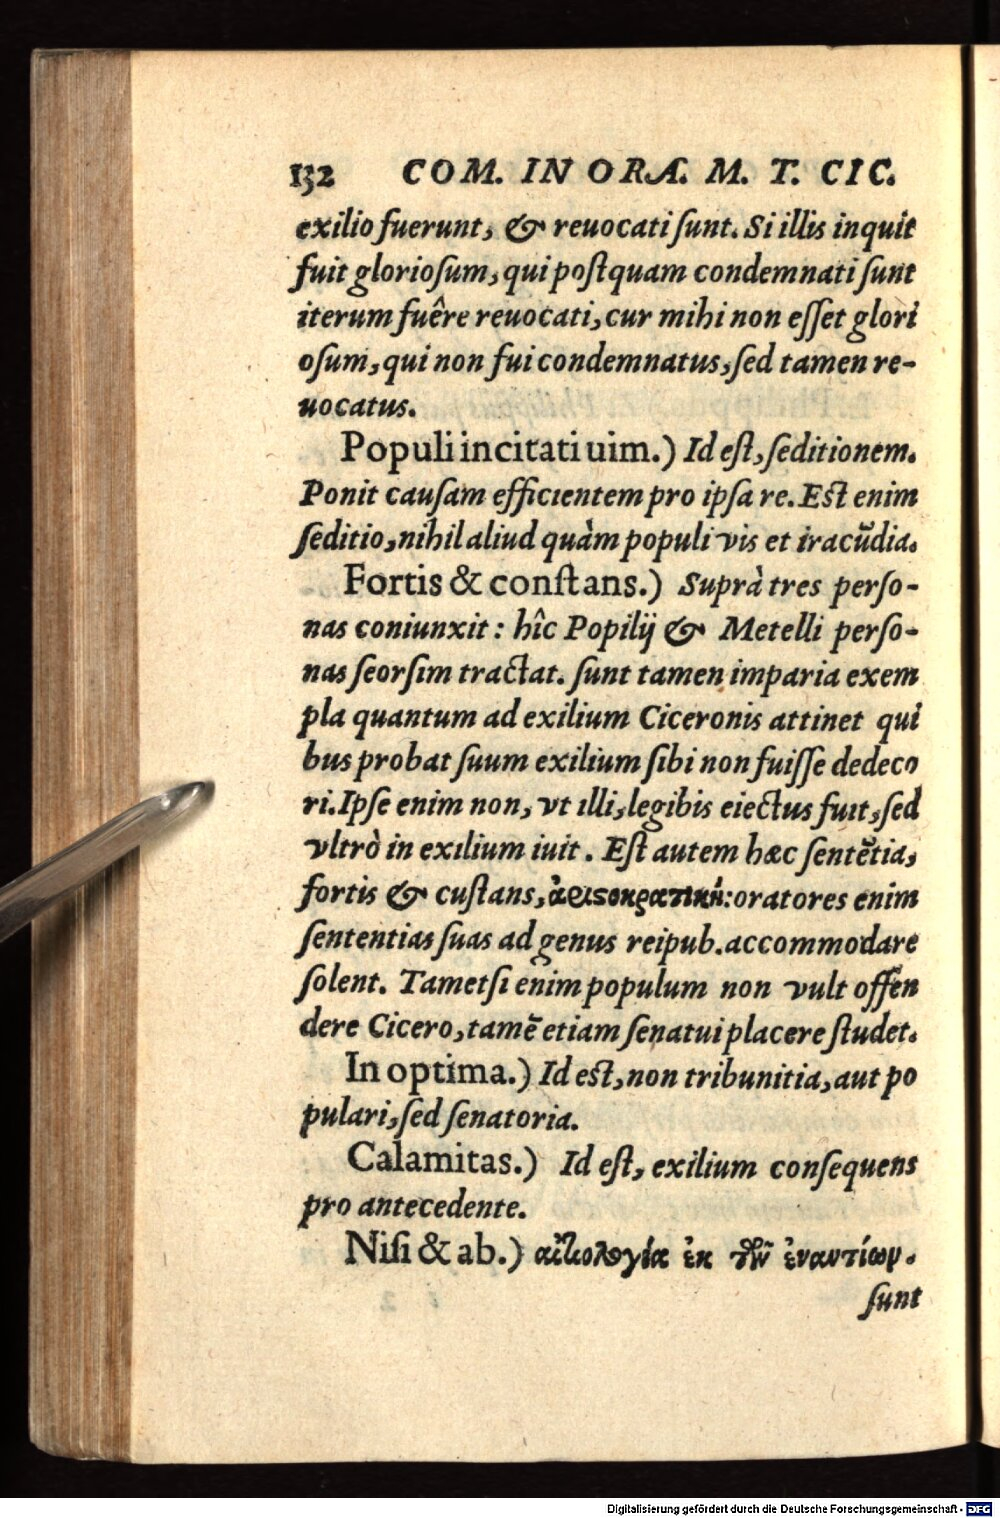 132 COM. IN ORA. M. T. CIC.
exilio fuerunt, & reuocati ſunt. Si illis inquit
fuit glorioſum, qui poſtquam condemnati ſunt
iterum fuêre reuocati, cur mihi non eſſet glori
oſum, qui non fui condemnatus, ſed tamen re-
uocatus.
Populi incitati uim.) Id eſt, ſeditionem.
Ponit cauſam efficientem pro ipſa re. Eſt enim
ſeditio, nihil aliud quàm populi vis et iracũdia.
Fortis & conſtans.) Suprà tres perſo-
nas coniunxit: hîc Popilij & Metelli perſo-
nas ſeorſim tractat. ſunt tamen imparia exem
pla quantum ad exilium Ciceronis attinet qui
bus probat ſuum exilium ſibi non fuiſſe dedeco
ri. Ipſe enim non, vt illi, legibis eiectus fuit, ſed
vltrò in exilium iuit. Eſt autem hæc ſentẽtia,
fortis & cuſtans, ἀριστοκρατική: oratores enim
ſententias ſuas ad genus reipub. accommodare
ſolent. Tametſi enim populum non vult offen
dere Cicero, tamẽ etiam ſenatui placere ſtudet.
In optima.) Id eſt, non tribunitia, aut po
pulari, ſed ſenatoria.
Calamitas.) Id eſt, exilium conſequens
pro antecedente.
Niſi & ab.) αἰτιολογία ἐκ τῶν ἐναντίων.
ſunt
Digitalisierung gefördert durch die Deutsche Forschungsgemeinschaft - DFG